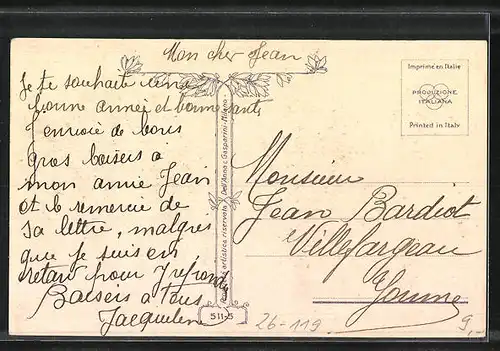 Mon cher Jean
Je te souhaite une
bonne année et bonne santé
J envoie de bons
Gros baisers a
mon amie Jean
et le remercie de
sa lettre, malgres
que je suis en
retard pour y repondre
Baisers a tous
Jacqueline
Proprietà artistica riservata Dell'Anna & Gasparini - Milano
511-5
Imprimé en Italie
PRODUZIONE
ITALIANA
Printed in Italy
Monsieur
Jean Bardiot
Villefargeau
Yonne
26-119
9,-